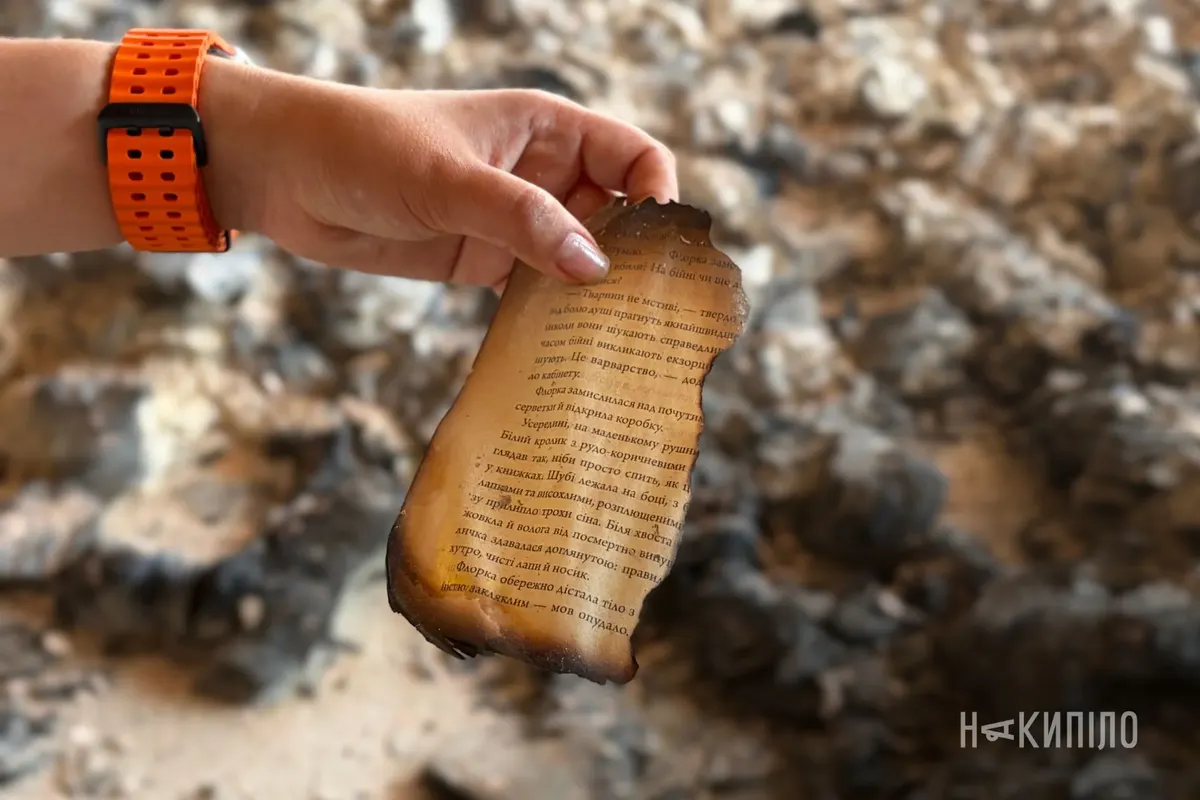 Флорка
вбили? На бійні чи ще
— Тварини не мстиві, —
від болю душі прагнуть якнайшвидш
інколи вони шукають справедли
часом бійні викликають екзорци
шують. Це варварство, — дод
до кабінету.
Флорка замислилася над почутим
серветки й відкрила коробку.
Усередині, на маленькому рушни
Білий кролик з рудо-коричневими
глядав так, ніби просто спить, як ц
у книжках. Шубі лежала на боці, з
лапками та висохлими, розплющеними
зу прилипло трохи сіна. Біля хвоста
жовкла й волога від посмертно
личка здавалася доглянутою: правил
хутро, чисті лапи й носик.
Флорка обережно дістала тіло з
істю заклякли́м — мов опудало.
НАКИПІЛО